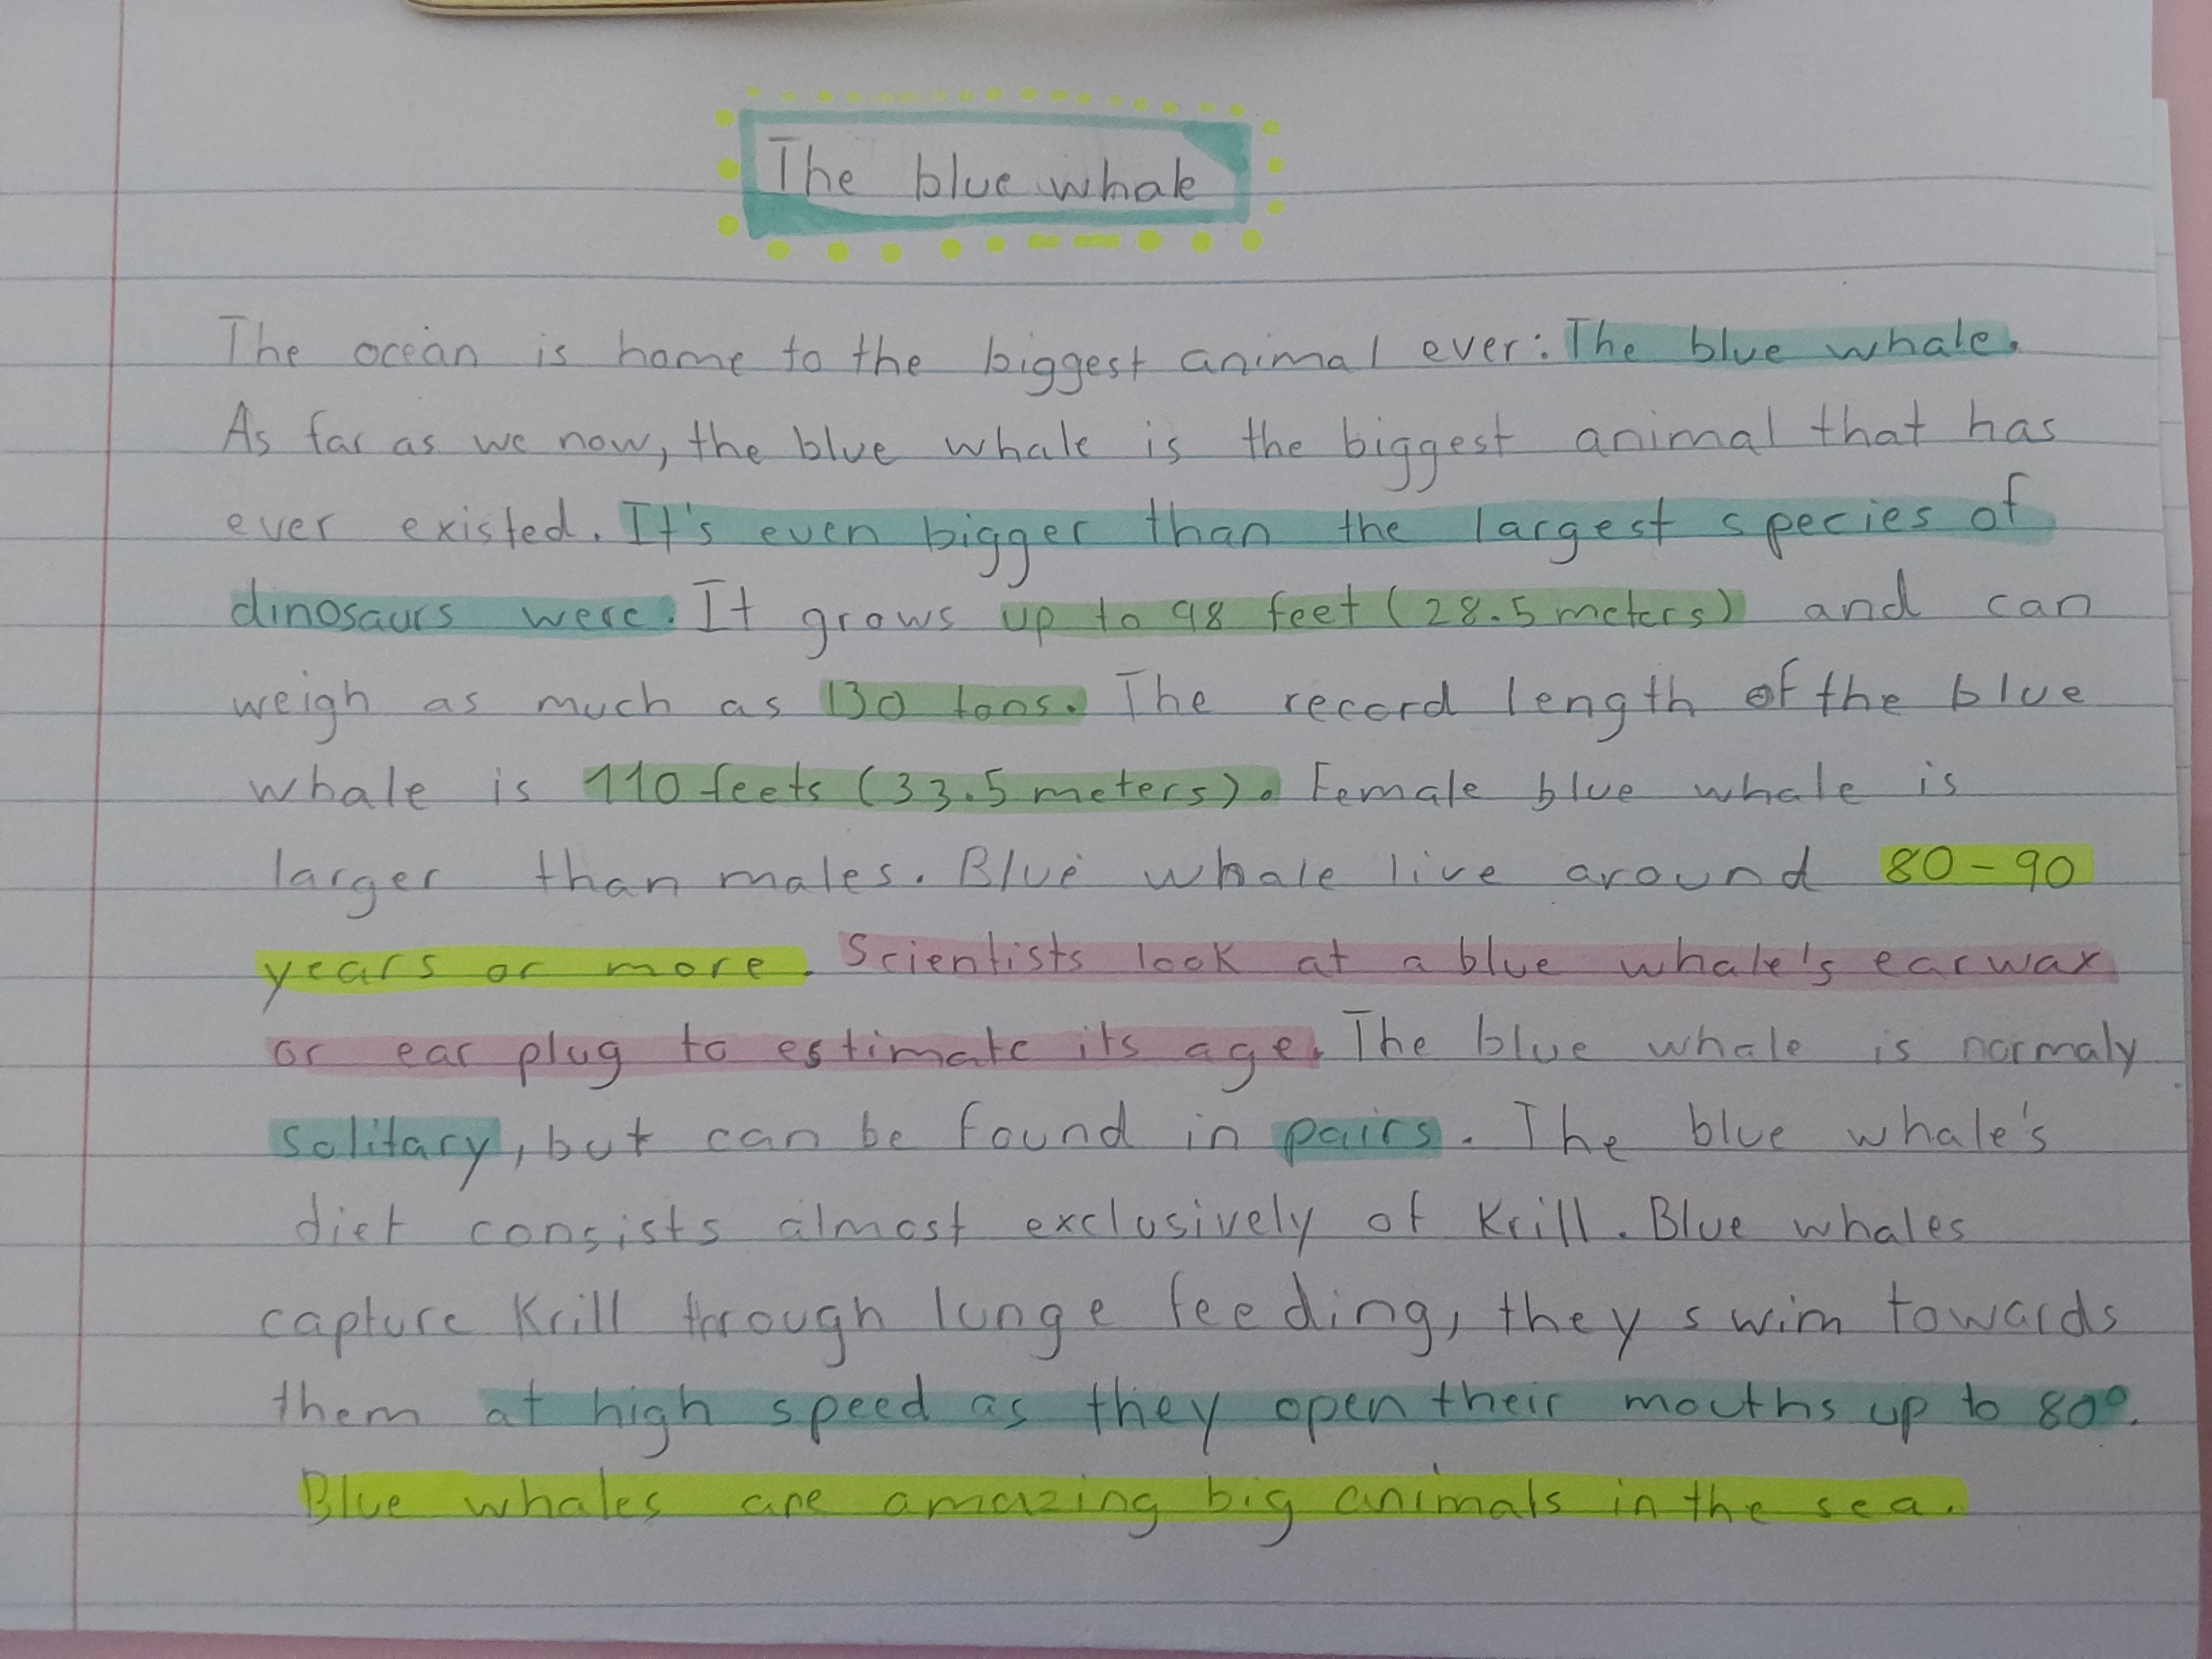 The blue whale
The ocean is home to the biggest animal ever: The blue whale.
As far as we now, the blue whale is the biggest animal that has
ever existed. It's even bigger than the largest species of
dinosaurs were. It grows up to 98 feet (28.5 meters) and can
weigh as much as 130 tons. The record length of the blue
whale is 110 feets (33.5 meters). Female blue whale is
larger than males. Blue whale live around 80-90
years or more. Scientists look at a blue whale's earwax
or ear plug to estimate its age. The blue whale is normaly
solitary, but can be found in pairs. The blue whale's
diet consists almost exclusively of Krill. Blue whales
capture Krill through lunge feeding, they swim towards
them at high speed as they open their mouths up to 80°.
Blue whales are amazing big animals in the sea.